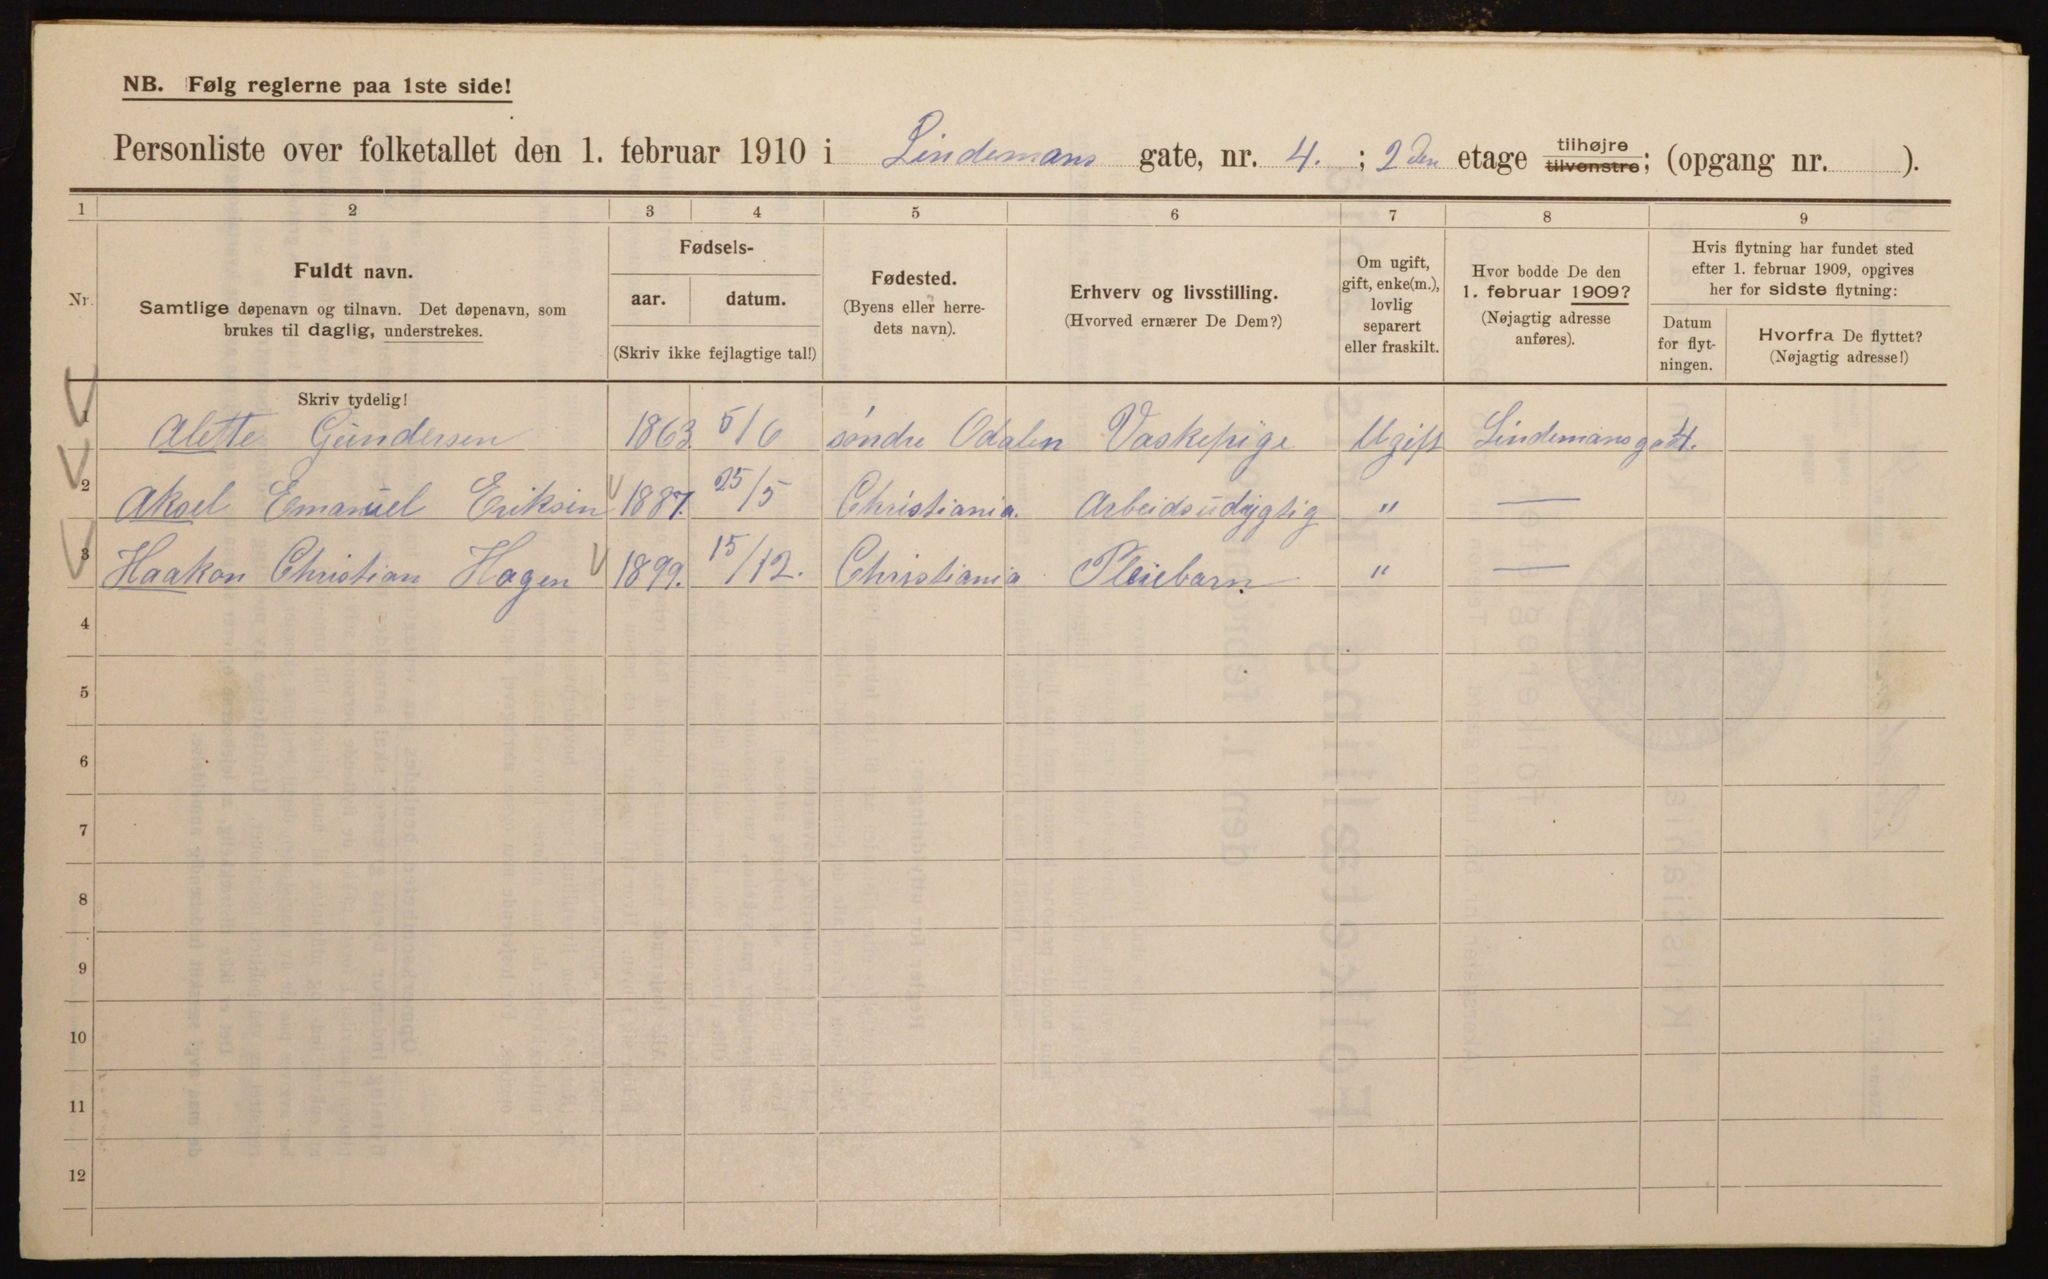 NB. Følg reglerne paa 1ste side!
Personliste over folketallet den 1. februar 1910 i Lindemans gate, nr. 4. ; 2den etage tilhøjre tilvenstre; (opgang nr. ).
1 2 3 4 5 6 7 8 9
Nr.
Fuldt navn.
Samtlige døpenavn og tilnavn. Det døpenavn, som
brukes til daglig, understrekes.
Fødsels-
aar. datum.
(Skriv ikke fejlagtige tal!)
Fødested.
(Byens eller herre-
dets navn).
Erhverv og livsstilling.
(Hvorved ernærer De Dem?)
Om ugift,
gift, enke(m.),
lovlig
separert
eller fraskilt.
Hvor bodde De den
1. februar 1909?
(Nøjagtig adresse
anføres).
Hvis flytning har fundet sted
efter 1. februar 1909, opgives
her for sidste flytning:
Datum
for flyt-
ningen.
Hvorfra De flyttet?
(Nøjagtig adresse!)
Skriv tydelig!
1 Alette Gundersen 1863. 5/6 søndre Odalen Vaskepige Ugift Lindemansgad 4.
2 Aksel Emanuel Eriksen 1887. 25/5 Christiania. Arbeidsudygtig " —
3 Haakon Christian Hagen 1899. 15/12. Christiania Pleiebarn. " —
4
5
6
7
8
9
10
11
12